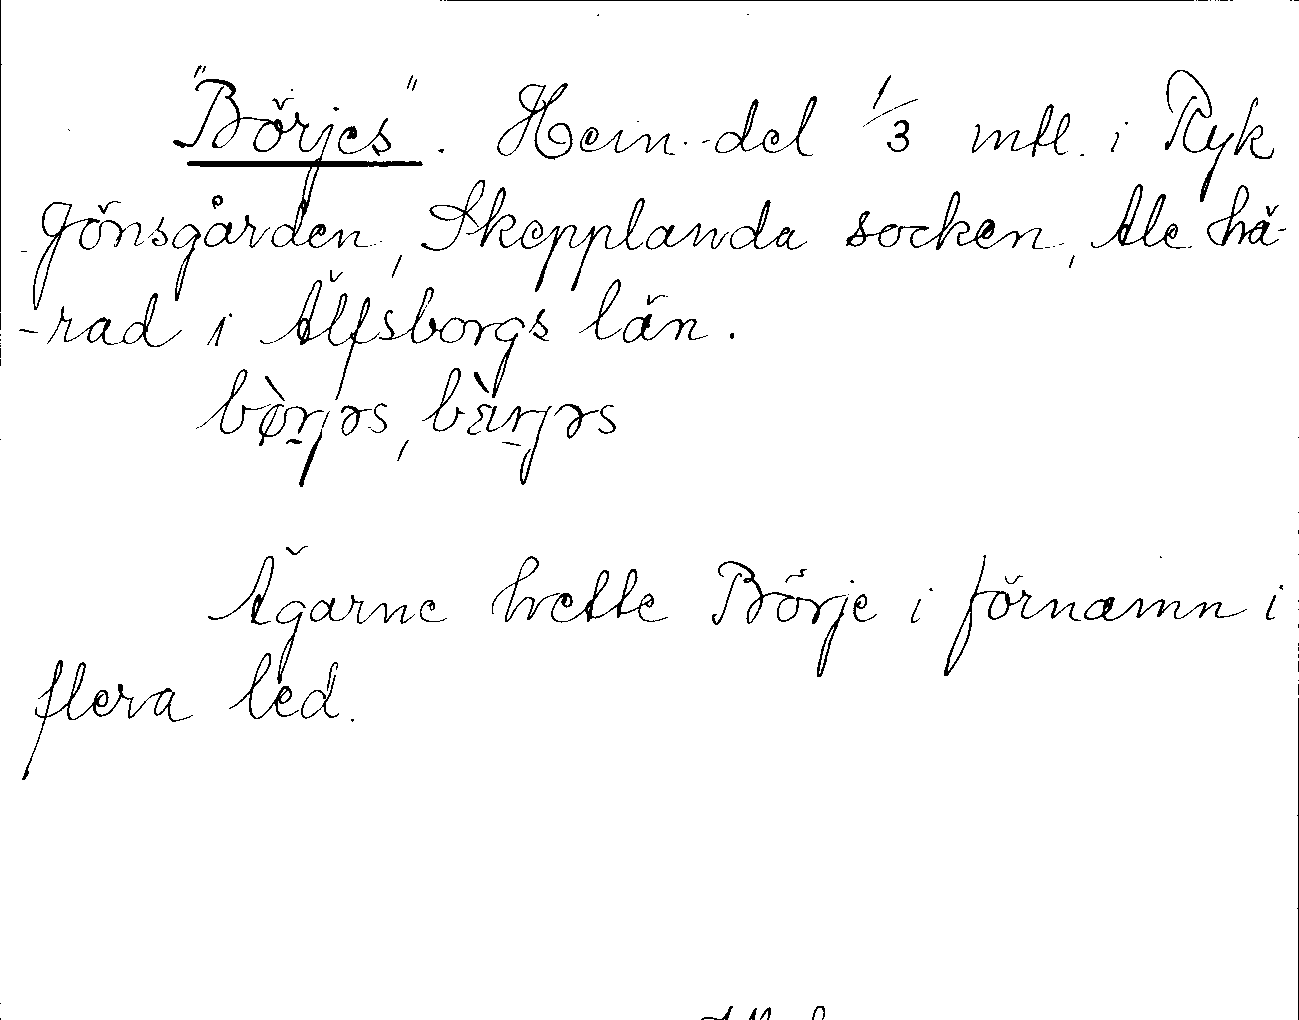 "Börjes". Hem.-del 1/3 mtl. i Ryk
Gönsgården, Skepplanda socken, Ale hä-
-rad i Älfsborgs län.
bø̀rjəs, bàrjəs
Ägarne hette Börje i förnamn i
flera led.